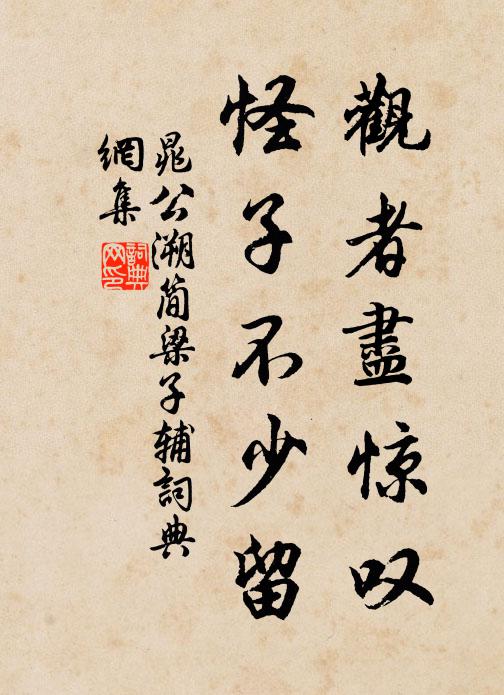 觀者盡惊叹
怪子不少留
晁公溯简梁子辅詞典
網集
詞典
网印